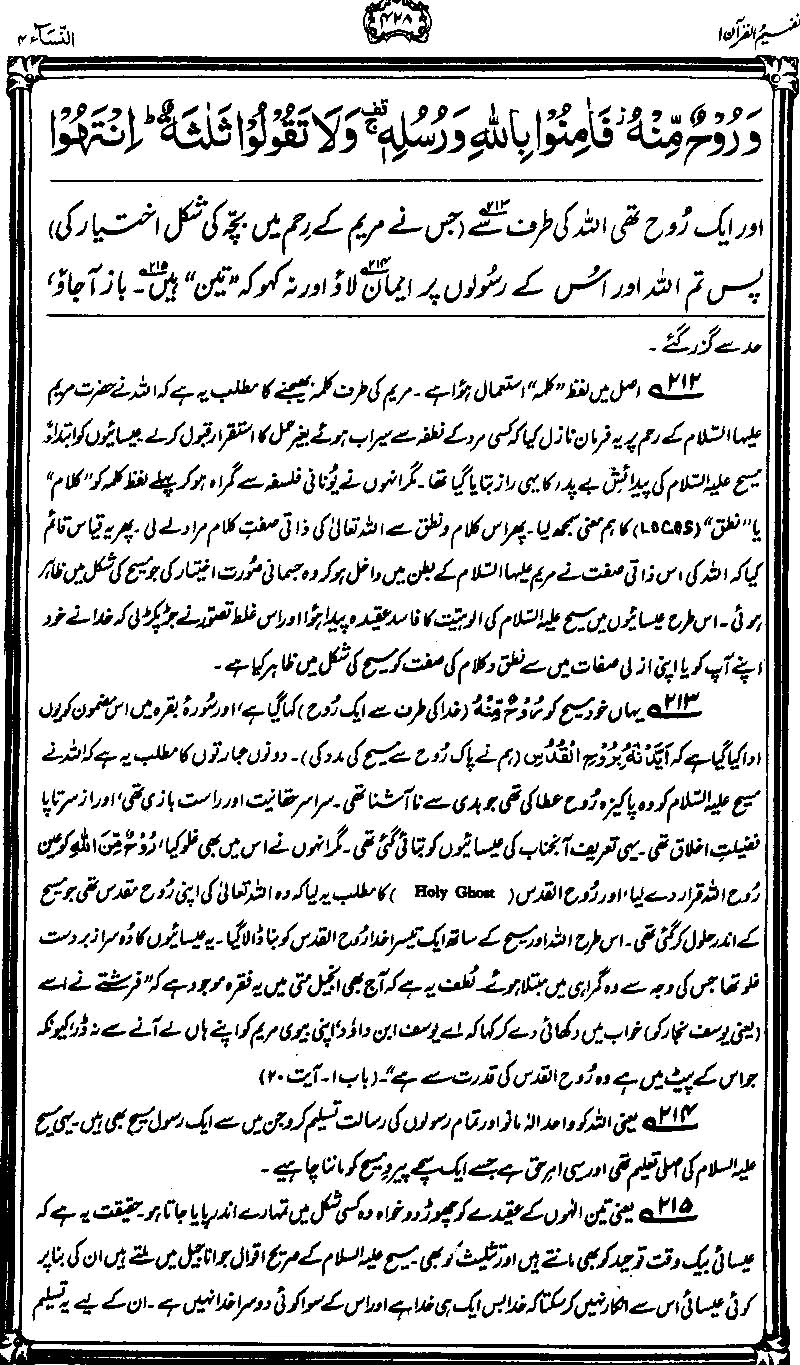 تفہیم القرآن ۱
۴۲۸
النساء ۴
وَرُوْحٌ مِّنْهُ ز فَاٰمِنُوْا بِاللّٰهِ وَرُسُلِهٖ وَلَا تَقُوْلُوْا ثَلٰثَةٌ ط اِنْتَهُوْا
اور ایک رُوح تھی اللہ کی طرف سے۲۱۳ (جس نے مریم کے رحِم میں بچّہ کی شکل اختیار کی)
پس تم اللہ اور اُس کے رسُولوں پر ایمان۲۱۴ لاؤ اور نہ کہو کہ ”تین“ ہیں۲۱۵۔ باز آجاؤ،
حد سے گزر گئے ۔
۲۱۲ اصل میں لفظ ”کلمہ“ استعمال ہُوا ہے ۔ مریم کی طرف کلمہ بھیجنے کا مطلب یہ ہے کہ اللہ نے حضرت مریم
علیہا السّلام کے رحم پر یہ فرمان نازل کیا کہ کسی مرد کے نطفہ سے سیراب ہوئے بغیر حمل کا استقرار قبول کر لے عیسائیوں کو ابتداءً
مسیح علیہ السّلام کی پیدائشِ بے پدر کا یہی راز بتایا گیا تھا ۔ مگر انہوں نے یُونانی فلسفہ سے گمراہ ہو کر پہلے لفظ کلمہ کو ”کلام“
یا ”نطق“ (LOGOS) کا ہم معنی سمجھ لیا ۔ پھر اس کلام و نطق سے اللہ تعالیٰ کی ذاتی صفتِ کلام مراد لے لی ۔ پھر یہ قیاس قائم
کیا کہ اللہ کی اس ذاتی صفت نے مریم علیہا السّلام کے بطن میں داخل ہو کر وہ جسمانی صُورت اختیار کی جو مسیح کی شکل میں ظاہر
ہوئی ۔ اس طرح عیسائیوں میں مسیح علیہ السّلام کی الوہیّت کا فاسد عقیدہ پیدا ہُوا اور اس غلط تصوّر نے جڑ پکڑ لی کہ خدا نے خود
اپنے آپ کو یا اپنی ازلی صفات میں سے نطق و کلام کی صفت کو مسیح کی شکل میں ظاہر کیا ہے ۔
۲۱۳ یہاں خود مسیح کو رُوْحٌ مِّنْهُ (خدا کی طرف سے ایک رُوح) کہا گیا ہے، اور سُورۂ بقرہ میں اس مضمون کو یوں
ادا کیا گیا ہے کہ اَيَّدْنٰهُ بِرُوْحِ الْقُدُسِ (ہم نے پاک رُوح سے مسیح کی مدد کی) ۔ دونوں عبارتوں کا مطلب یہ ہے کہ اللہ نے
مسیح علیہ السّلام کو وہ پاکیزہ رُوح عطا کی تھی جو بدی سے ناآشنا تھی ۔ سراسر حقانیت اور راست بازی تھی، اور از سرتاپا
فضیلتِ اخلاق تھی ۔ یہی تعریف آنجناب کی عیسائیوں کو بتائی گئی تھی ۔ مگر انہوں نے اس میں بھی غلو کیا، رُوْحٌ مِّنَ اللّٰهِ کو عین
رُوح اللہ قرار دے لیا، اور رُوح القدس ( Holy Ghost ) کا مطلب یہ لیا کہ وہ اللہ تعالیٰ کی اپنی رُوحِ مقدس تھی جو مسیح
کے اندر حلول کر گئی تھی ۔ اس طرح اللہ اور مسیح کے ساتھ ایک تیسرا خدا رُوح القدس کو بنا ڈالا گیا ۔ یہ عیسائیوں کا دُوسرا زبردست
غلو تھا جس کی وجہ سے وہ گمراہی میں مبتلا ہوئے ۔ لُطف یہ ہے کہ آج بھی انجیل متی میں یہ فقرہ موجود ہے کہ ”فرشتے نے اسے
(یعنی یوسف نجار کو) خواب میں دکھائی دے کر کہا کہ اے یوسف ابن داؤد، اپنی بیوی مریم کو اپنے ہاں لے آنے سے نہ ڈر، کیونکہ
جو اس کے پیٹ میں ہے وہ رُوح القدس کی قدرت سے ہے“ ۔ (باب ۱ ۔ آیت ۲۰)
۲۱۴ یعنی اللہ کو واحد الٰہ مانو اور تمام رسولوں کی رسالت تسلیم کرو جن میں سے ایک رسول مسیح بھی ہیں ۔ یہی مسیح
علیہ السّلام کی اصلی تعلیم تھی اور یہی امرِ حق ہے جسے ایک سچے پیروِ مسیح کو ماننا چاہیے ۔
۲۱۵ یعنی تین الٰہوں کے عقیدے کو چھوڑ دو خواہ وہ کسی شکل میں تمہارے اندر پایا جاتا ہو ۔ حقیقت یہ ہے کہ
عیسائی بیک وقت توحید کو بھی مانتے ہیں اور تثلیث کو بھی ۔ مسیح علیہ السّلام کے صریح اقوال جو اناجیل میں ملتے ہیں ان کی بنا پر
کوئی عیسائی اس سے انکار نہیں کر سکتا کہ خدا بس ایک ہی خدا ہے اور اس کے سوا کوئی دوسرا خدا نہیں ہے ۔ ان کے لیے یہ تسلیم